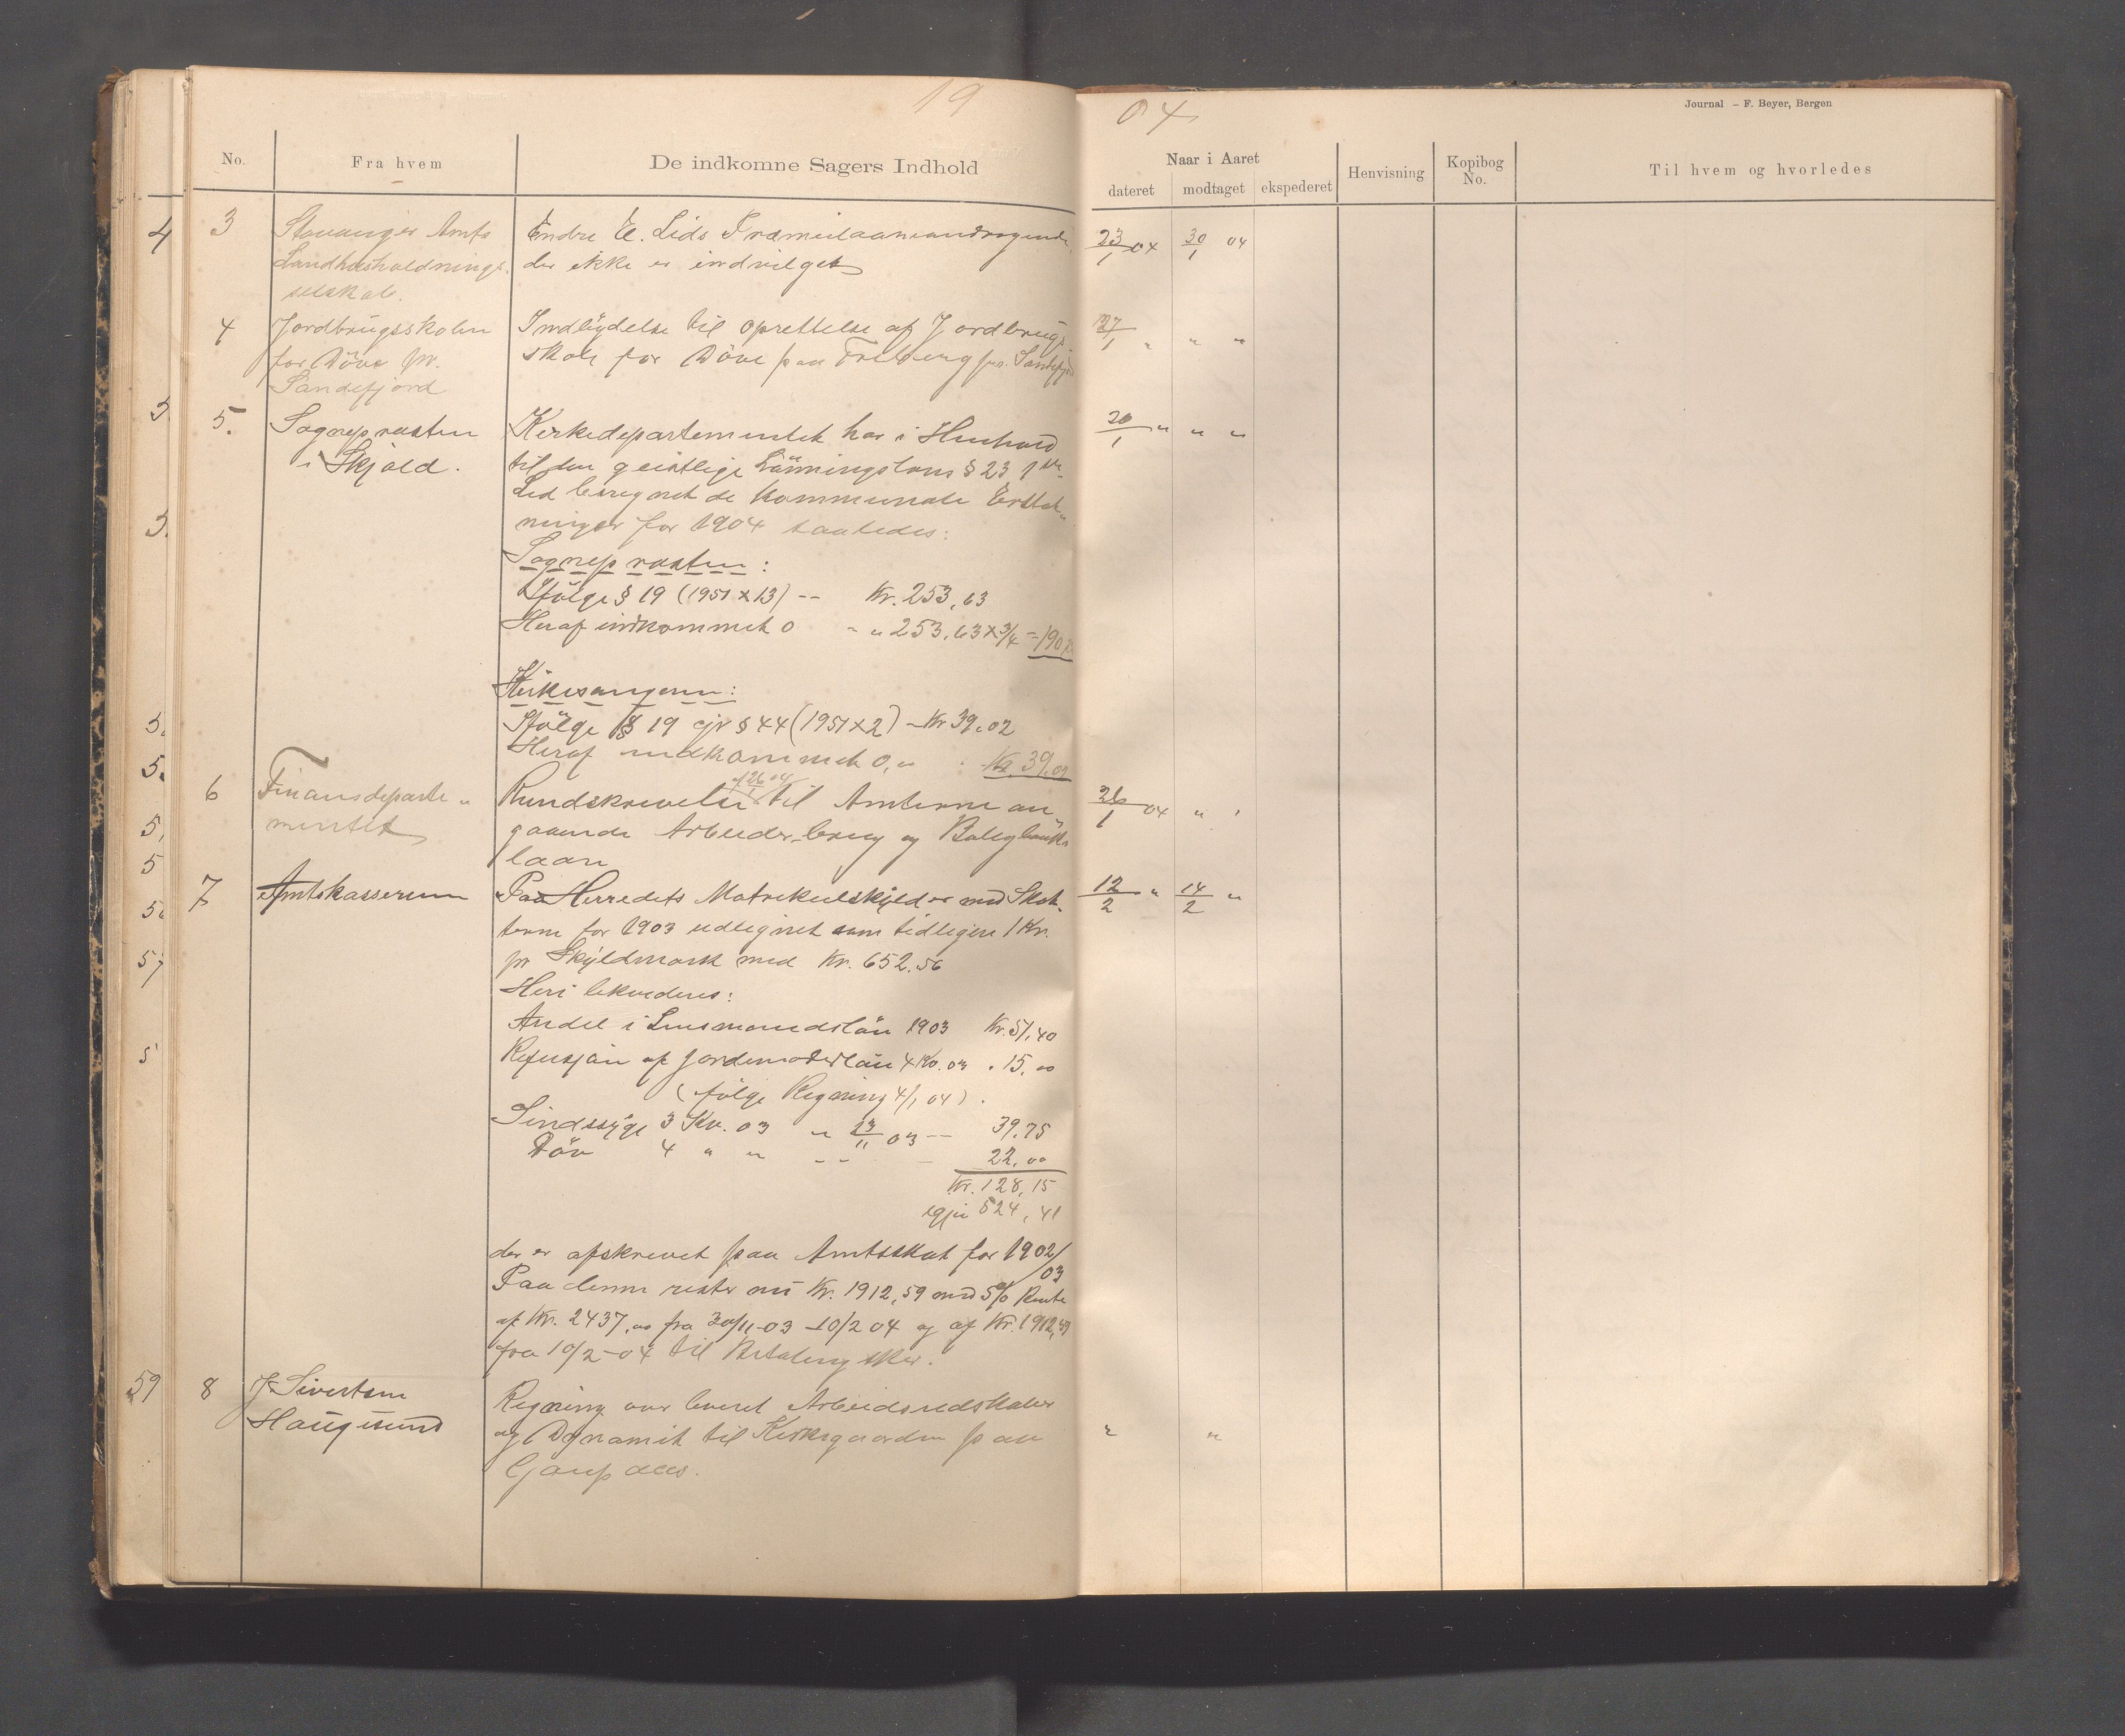 19 04
Journal – F. Beyer, Bergen
No. Fra hvem De indkomne Sagers Indhold Naar i Aaret dateret modtaget ekspederet Henvisning Kopibog No. Til hvem og hvorledes
3 Stavanger Amts Endre E. Lids 23/1 04 30/1 04
Landhusholdnings- der ikke er indvilget
selskab.
4 Jordbrugsskolen Indbydelse til Oprettelse af Jordbrugs- 27/1 " " "
for Döve pr. skole for Döve paa Freberg pr. Sandefjord
Sandefjord
5. Sognepræsten Kirkedepartementet har i Henhold 20/1 " " "
i Skjold. til den geistlige Lönningslovs § 23 1ste
Led beregnet de kommunale Erstat-
ninger for 1904 saaledes:
Sognepræsten:
Ifölge § 19 (1951 x 13) -- Kr. 253,63
Heraf indkommet 0 - " 253,63 x 3/4 = 190
Kirkesangeren:
Ifölge § 19 cfr § 44 (1951 x 2) - Kr 39.02
Heraf indkommet 0," Kr. 39.02
6 Finansdeparte- Rundskrivelse af 26/1 04 til Amterne an- 26/1 04 " "
mentet gaaende Arbeider-brug og Boligbank-
laan
7 Amtskassereren Paa Herredets Matrikulskyld er med Skat- 12/2 " 14/2 "
terne for 1903 udlignet som tidligere 1 Kr.
pr Skyldmark med Kr. 652.56
Heri likvideres:
Andel i Lensmandslön 1903 Kr. 51,40
Refusjon af Jordemoderlön 4 Kv. 03 " 15,00
(fölge Regning 4/1 04).
Sindssyge 3 Kv. 03 " 23/11 03 -- 39.75
Döv 4 " " - - - 22,00
Kr. 128,15
igjen 524,41
der er afskrevet paa Amtsskat for 1902/03
Paa denne rester nu Kr. 1912,59 med 5% Rente
af Kr. 2437,00 fra 30/11-03 - 10/2 04 og af Kr. 1912,59
fra 10/2-04 til Betaling sker.
8 J Sivertsen Regning over leveret Arbeidsredskaber " "
Haugesund og Dynamit til Kirkegaarden paa
4
5
5
5.
5.
5,
5
5
57
5
59